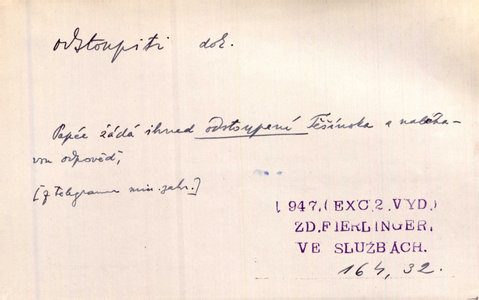 odstoupiti dok.
Papée žádá ihned odstoupení Těšínska a naléha-
vou odpověď,
[z telegramu min. zahr.]
1947, (EXC, 2, VYD,)
ZD, FIERLINGER,
VE SLUŽBÁCH.
164, 32.